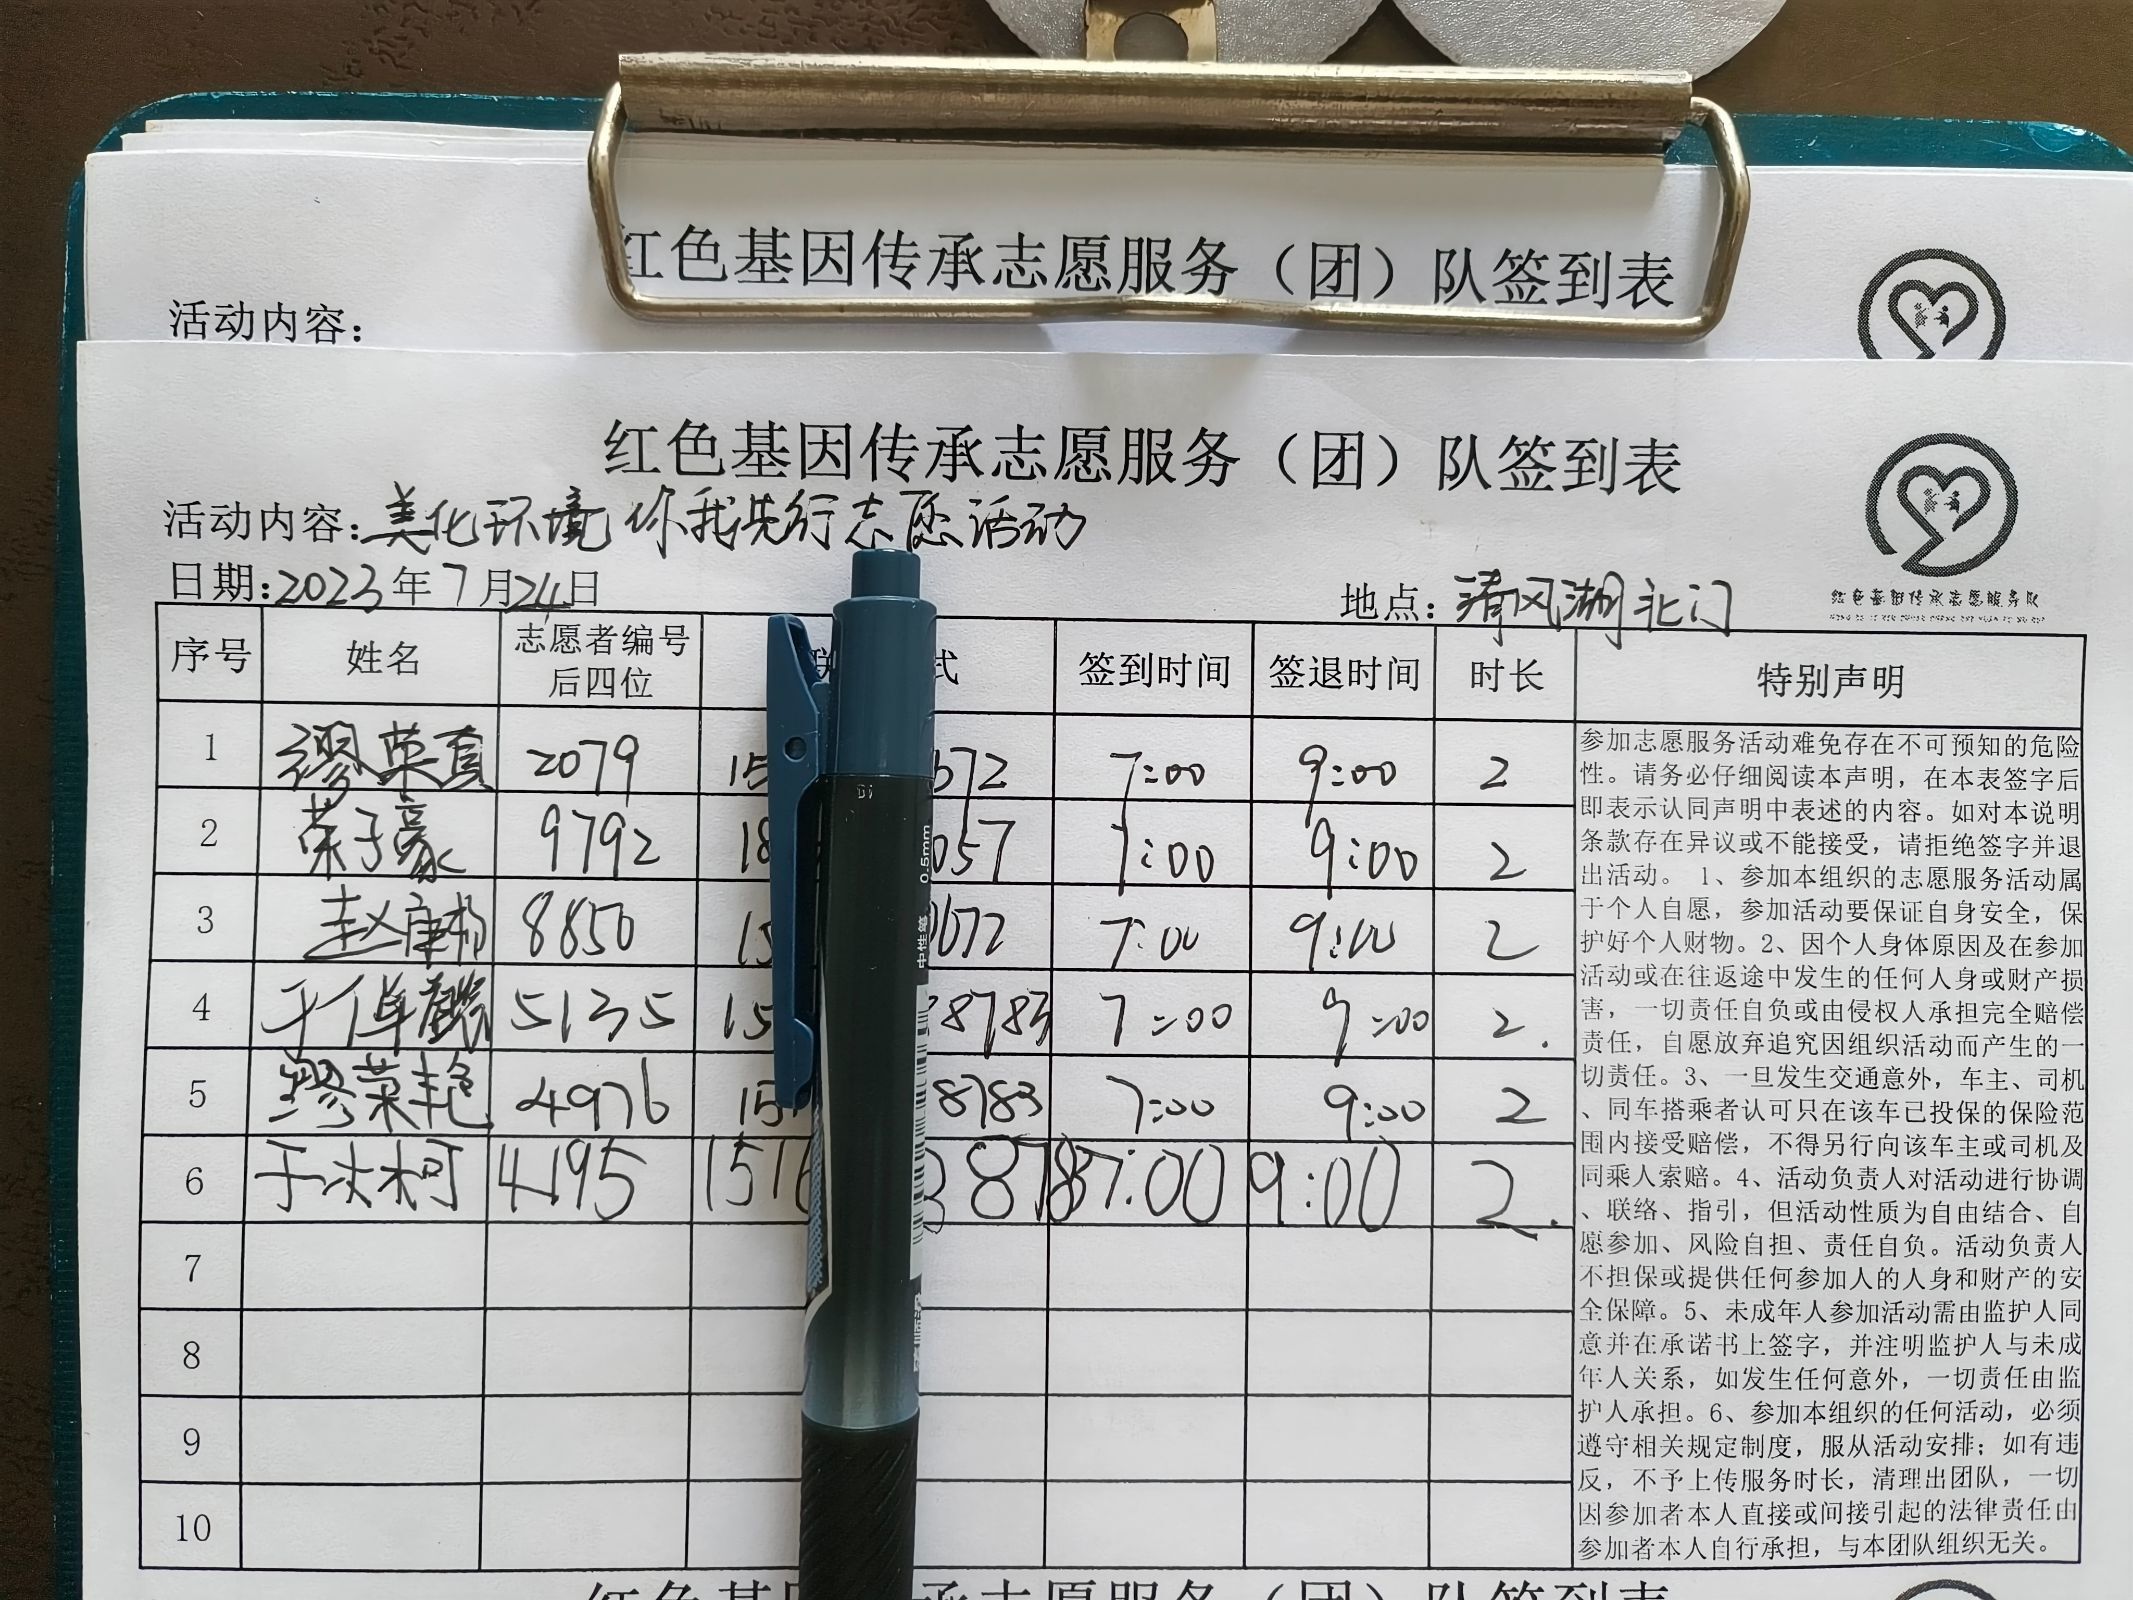 红色基因传承志愿服务（团）队签到表
活动内容：
红色基因传承志愿服务（团）队签到表
活动内容：美化环境你我先行志愿活动
日期：2023年7月24日
地点：清风湖北门
红色基因传承志愿服务队
序号 姓名 志愿者编号后四位 联 式 签到时间 签退时间 时长 特别声明
1 缪荣真 2079 15 672 7:00 9:00 2
2 荣子豪 9792 18 057 7:00 9:00 2
3 赵 8850 15 1672 7:00 9:00 2
4 于 5135 15 8783 7:00 9:00 2.
5 缪荣艳 4976 15 8783 7:00 9:00 2
6 于 柯 4195 1516 3878 7:00 9:00 2.
7
8
9
10
参加志愿服务活动难免存在不可预知的危险
性。请务必仔细阅读本声明，在本表签字后
即表示认同声明中表述的内容。如对本说明
条款存在异议或不能接受，请拒绝签字并退
出活动。 1、参加本组织的志愿服务活动属
于个人自愿，参加活动要保证自身安全，保
护好个人财物。2、因个人身体原因及在参加
活动或在往返途中发生的任何人身或财产损
害，一切责任自负或由侵权人承担完全赔偿
责任，自愿放弃追究因组织活动而产生的一
切责任。3、一旦发生交通意外，车主、司机
、同车搭乘者认可只在该车已投保的保险范
围内接受赔偿，不得另行向该车主或司机及
同乘人索赔。4、活动负责人对活动进行协调
、联络、指引，但活动性质为自由结合、自
愿参加、风险自担、责任自负。活动负责人
不担保或提供任何参加人的人身和财产的安
全保障。5、未成年人参加活动需由监护人同
意并在承诺书上签字，并注明监护人与未成
年人关系，如发生任何意外，一切责任由监
护人承担。6、参加本组织的任何活动，必须
遵守相关规定制度，服从活动安排；如有违
反，不予上传服务时长，清理出团队，一切
因参加者本人直接或间接引起的法律责任由
参加者本人自行承担，与本团队组织无关。
0.5mm
中性笔
红色基 承志愿服务（团）队签到表